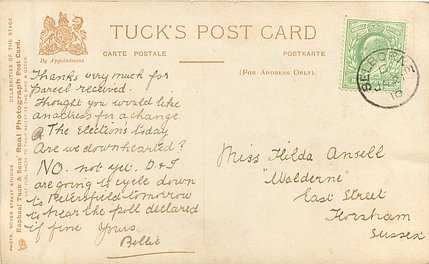 TUCK'S POST CARD
By Appointment
CARTE POSTALE
POSTKARTE
(FOR ADDRESS ONLY).
CELEBRITIES OF THE STAGE
Raphael Tuck & Sons' "Real Photograph Post Card.
Thanks very much for
parcel received.
Thought you would like
an actress for a change.
The Elections today
Are we downhearted?
NO. not yet. D. & I
are going to cycle down
to Petersfield tomorrow
to hear the poll declared
if fine Yours.
Billie
SELBORNE
10
Miss Hilda Ansell
"Walderne"
East Street
Horsham
Sussex